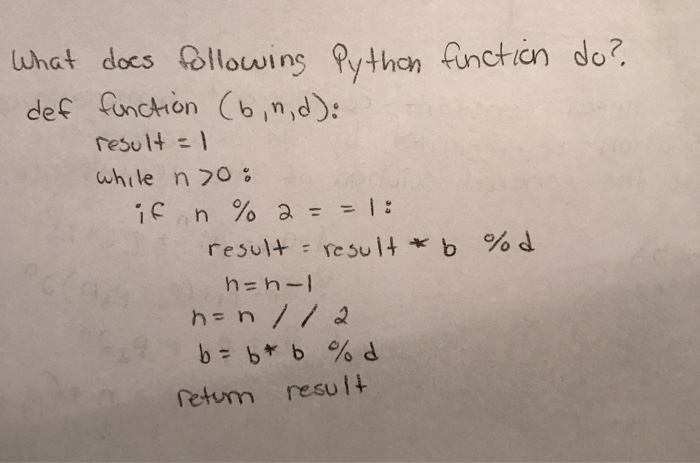 What does following Python function do?
def function (b,n,d):
result = 1
while n >0 :
if n % 2 = = 1:
result = result * b % d
n=n-1
n=n / / 2
b= b* b % d
return result